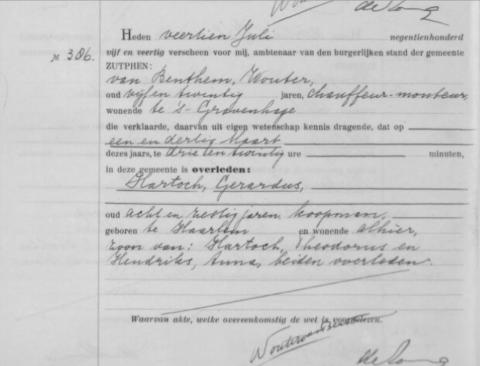 de Jong
Heden veertien Juli negentienhonderd
№ 386. vijf en veertig verscheen voor mij, ambtenaar van den burgerlijken stand der gemeente
ZUTPHEN:
van Benthem, Wouter,
oud vijf en twintig jaren, chauffeur-monteur,
wonende te 's-Gravenhage
die verklaarde, daarvan uit eigen wetenschap kennis dragende, dat op
een en dertig Maart
dezes jaars, te drie en twintig ure minuten,
in deze gemeente is overleden:
Hartoch, Gerardus,
oud acht en zestig jaren, koopman,
geboren te Haarlem en wonende alhier,
zoon van: Hartoch, Theodorus en
Hendriks, Anna, beiden overleden.
Waarvan akte, welke overeenkomstig de wet is voorgelezen.
de Jong